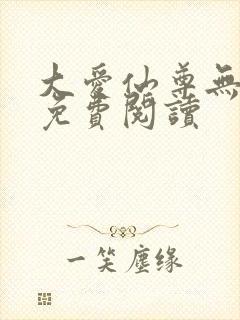 大愛仙尊無
免費閱讀
一笑塵缘